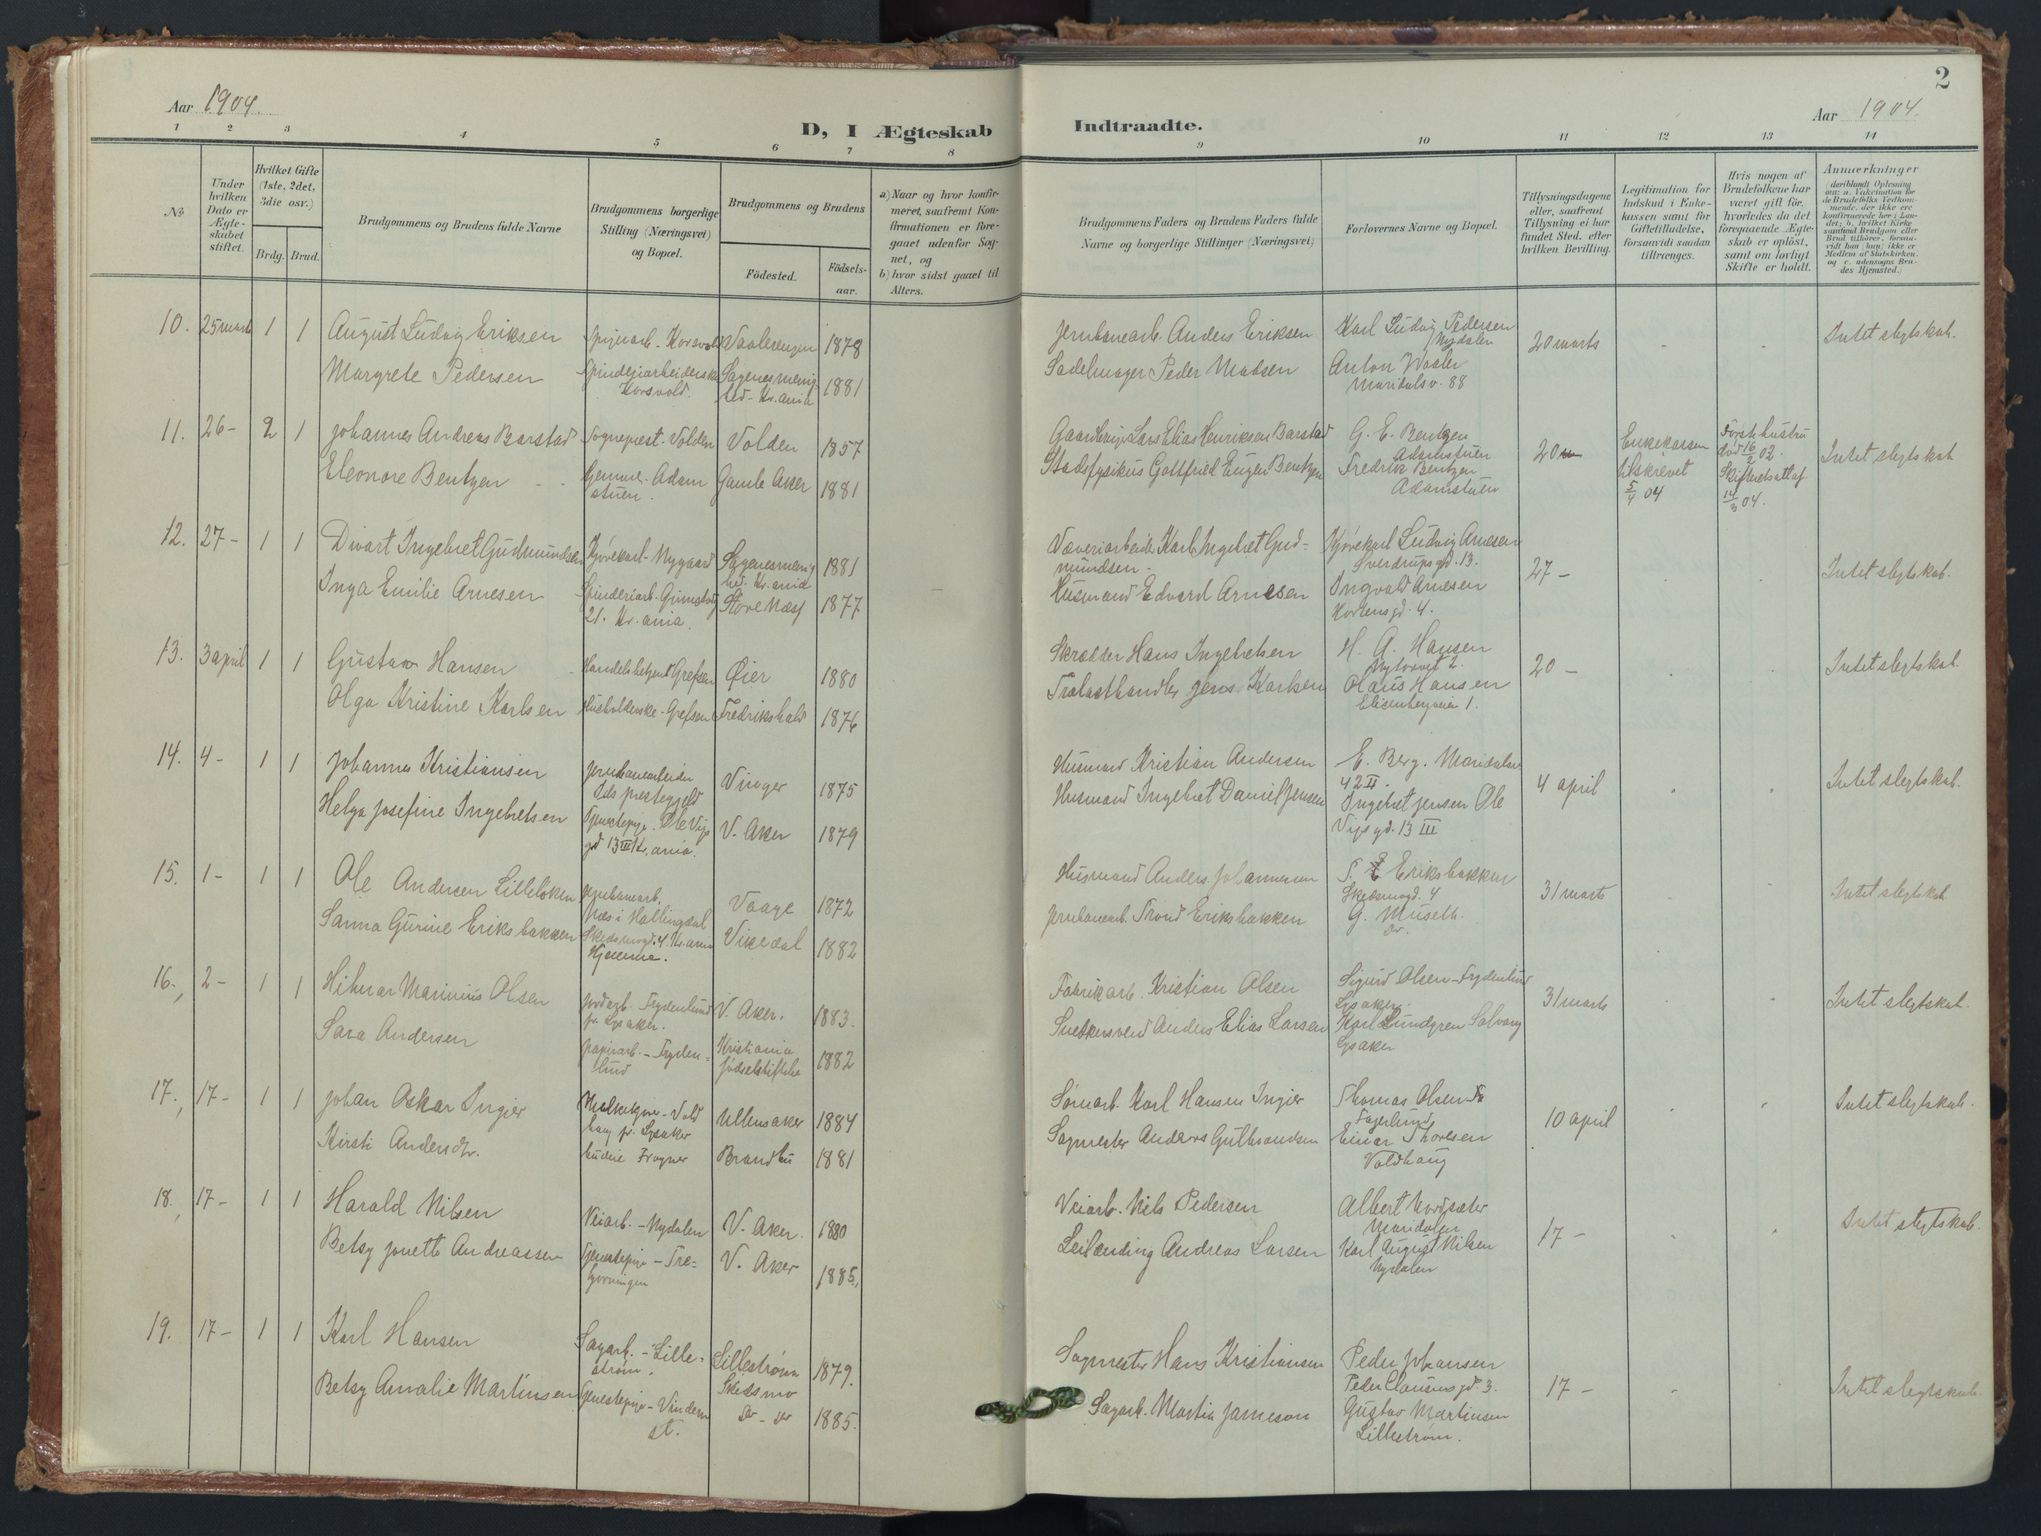 2
Aar 1904.
Aar 1904.
D, I Ægteskab Indtraadte.
1 2 3 4 5 6 7 8 9 10 11 12 13 14
No
Under hvilken Dato er Ægteskabet stiftet.
Hvilket Gifte (1ste, 2det, 3die osv.)
Brdg. Brud.
Brudgommens og Brudens fulde Navne
Brudgommens borgerlige Stilling (Næringsvei) og Bopæl.
Brudgommens og Brudens
Fødested.
Fødselsaar.
a) Naar og hvor konfirmeret, saafremt Konfirmationen er foregaaet udenfor Sognet, og
b) hvor sidst gaaet til Alters.
Brudgommens Faders og Brudens Faders fulde Navne og borgerlige Stillinger (Næringsvei)
Forlovernes Navne og Bopæl.
Tillysningsdagene eller, saafremt Tillysning ei har fundet Sted, efter hvilken Bevilling.
Legitimation for Indskud i Enkekassen samt for Giftetilladelse, forsaavidt saadan tiltrænges.
Hvis nogen af Brudefolkene har været gift før, hvorledes da det foregaaende Ægteskab er opløst, samt om lovligt Skifte er holdt.
Anmærkninger
deriblandt Oplysning om: a. Vakcination for de Brudefolks Vedkommende, der ikke ere konfirmerede her i Landet; b. hvilket Kirkesamfund Brudgom eller Brud tilhører, forsaavidt han (hun) ikke er Medlem af Statskirken, og c. udensogns Brudes Hjemsted.)
10. 25 marts 1 1 August Ludvig Eriksen Spigerarb. - Korsvold Vaalerengen 1878 Jernbanearb. Anders Eriksen Karl Ludvig Pedersen Nydalen 20 marts Intet slegtskab.
Margrete Pedersen Spinderiarbeiderske Korsvold. Sagenes menighed - Kr.ania 1881 Sadelmager Peder Madsen Anton Waaler Maridalsv. 88
11. 26 - 2 1 Johannes Andreas Barstad Sogneprest - Volden Volden 1857 Gaardbruger Lars Elias Henriksen Barstad G. E. Bentzen Adamstuen 20 Enkekassen tilskrevet 5/4 04 Første hustru død 16/2 02. Skifteretsatt af 14/3 04. Intet slegtskab
Eleonore Bentzen Hjemme - Adamstuen. Gamle Aker 1881 Stadsfysikus Gottfried Eugen Bentzen Fredrik Bentzen Adamstuen
12. 27 - 1 1 Divart Ingebret Gudmundsen Kjørekarl - Nygaard Sagenes menighed. Kr.ania 1881 Væveriarbeider Karl Ingebret Gudmundsen. Kjørekarl Ludvig Arnesen Sverdrupsgd. 13. 27 - Intet slegtskab.
Inga Emilie Arnesen Spinderiarb. Grimstadg 21. Kr.ania. Store Næss 1877 Husmand Edvard Arnesen Ingvald Arnesen Hortensgd. 4.
13. 3 april 1 1 Gustav Hansen Handelsbetjent Grefsen Øier 1880 Skrædder Hans Ingebretsen H. A. Hansen Nytorvet 2. 20 - Intet slegtskab.
Olga Kristine Karlsen Husholderske - Grefsen Fredrikshald 1876 Trælasthandler Jens Karlsen Olaus Hansen Elisenbergveien 1.
14. 4 - 1 1 Johannes Kristiansen Jernbanearbeider Ids prestegjeld Vinger 1875 Husmand Kristian Andersen E. Berg. Maridalsv 42 II. 4 april Intet slegtskab.
Helga Josefine Ingebretsen Tjenestepige. Ole Vigs gd 13 III Kr.ania. V. Aker 1879 Husmand Ingebret Daniel Jensen Ingebret Jensen Ole Vigs gd. 13 III
15. 1 - 1 1 Ole Andersen Lilleløken Jernbanearb. Næs i Hallingdal Vaage 1872 Husmand Anders Johannesen T. E Eriksbakken Skedsmogd. 4 31 marts Intet slegtskab
Sanna Gurine Eriksbakken Skedsmogd. 4. Kr.ania Hjemme. Vikedal 1882 Jernbanearb. Trond Eriksbakken G. Museth. do.
16. 2 - 1 1 Hilmar Marinius Olsen Jordarb. Frydenlund pr. Lysaker. V. Aker. 1883. Fabrikarb. Kristian Olsen Sigurd Olsen - Frydenlund Lysaker. 31 marts Intet slegtskab.
Sara Andersen Papirarb. - Frydenlund Kristiania fødselsstiftelse 1882 Snekersvend Anders Elias Larsen Karl Lundgren Solvang Lysaker
17. 17 - 1 1 Johan Oskar Ingier Melkekjører - Voldhaug pr. Lysaker Ullensaker 1884 Karl Hansen Ingier Thomas Olsen Fagerlund 10 april Intet slegtskab.
Kirsti Andersdtr. budeie Frogner Brandbu 1881 Sagmester Anders Gulbrandsen Einar Thorvsen Voldhaug
18. 17 - 1 1 Harald Nilsen Veiarb. - Nydalen V. Aker. 1880 Veiarb. Nils Pedersen Albert Nordsæter Maridalen 17 - Intet slegtskab.
Betsy Jonette Andreassen Tjenestepige - V. Aker 1885. Leilænding Andreas Larsen Karl August Nilsen Nydalen
19. 17 - 1 1 Karl Hansen Sagarb. - Lillestrøm. Lillestrøm Skedsmo 1879. Sagmester Hans Kristiansen Peder Johansen Peder Clausens gd. 3. 17 - Intet slegtskab.
Betsy Amalie Martinsen Tjenestepige - Vinderen st. do - do 1885. Sagarb. Martin Jameson Gustav Martinsen Lillestrøm.